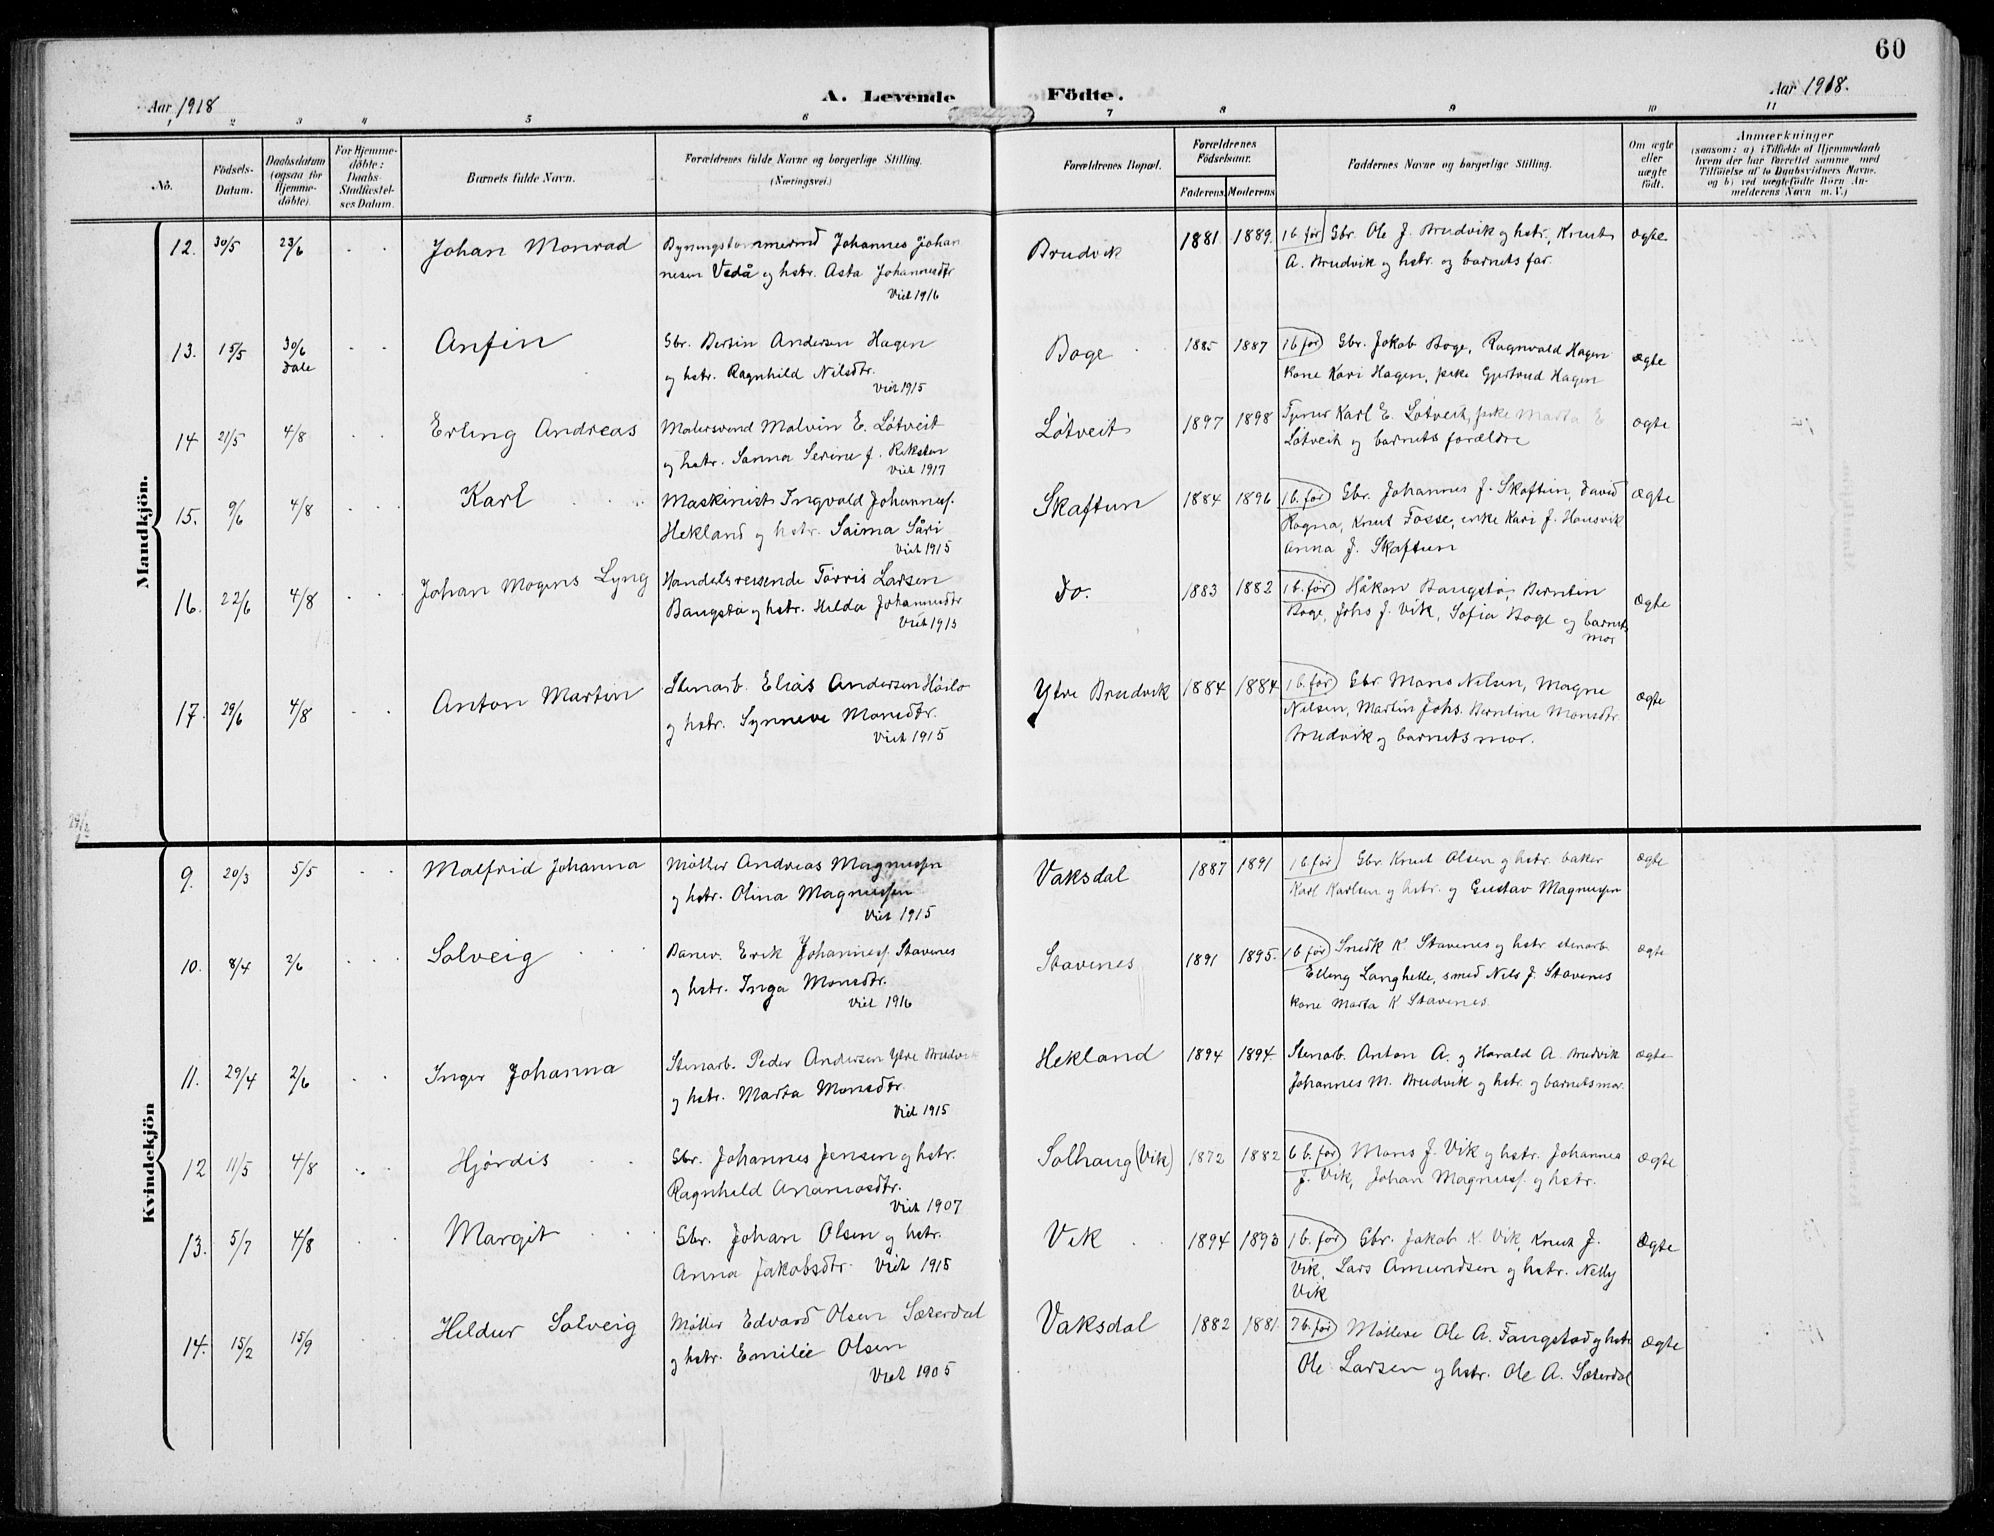 60
Aar 1918
A. Levende Födte.
Aar 1918.
1 2 3 4 5 6 7 8 9 10 11
No.
Födsels-Datum.
Daabsdatum (ogsaa for Hjemme-döbte).
For Hjemme-döbte: Daabs-Stadfæstel-ses Datum.
Barnets fulde Navn.
Forældrenes fulde Navne og borgerlige Stilling.
(Næringsvei.)
Forældrenes Bopæl.
Forældrenes Födselsaar.
Faderens. Moderens.
Faddernes Navne og borgerlige Stilling.
Om ægte eller uægte født.
Anmærkninger
(saasom: a) i Tilfælde af Hjemmedaab
hvem der har forrettet samme, med
Tilföielse af to Daabsvidners Navne.
og b) ved uægtefödte Börn An-
melderens Navn m. V.)
Mandkjön.
12. 30/5 23/6 Johan Monrad Johannes Johan 1881 1889. 1 b. før Gbr. Ole J. Brudvik og hstr, Knut ægte
nesen Vedå og hstr. Asta Johannesdtr Brudvik A. Brudvik og hstr. og barnets far.
Viet 1916
13. 15/5 30/6 Anfin Gbr. Bertin Andersen Hagen Boge 1885 1887 1 b. før Gbr. Jakob Boge, Ragnvald Hagen ægte
Dale og hstr. Ragnhild Nilsdtr. kone Kari Hagen, pike Gjertrud Hagen
Viet 1915
14 21/5 4/8 Erling Andreas Malersvend Malvin E. Løtveit Løtveit 1897 1898 Tjener Karl E. Løtveit, pike Marta E ægte
og hstr. Sanna Serine J. Løtveit og barnets forældre
Viet 1917
15. 9/6 4/8 Karl Maskinist Ingvald Johanness. Skaftun 1884 1896 1 b. før Gbr. Johannes J. Skaftun, David ægte
Hekland og hstr. Saima Såri Ragna, Knut Fosse, enke Kari J. Hausvik
Viet 1915 Anna J. Skaftun
16. 22/6 4/8 Johan Mogens Lyng Handelsreisende Torris Larsen Do. 1883 1882 1 b. før Håkon Baugstø, Berntin ægte
Baugstø og hstr. Hilda Johannesdtr Boge, Johs J. Vik, Sofia Boge og barnets
mor
17. 29/6 4/8 Anton Martin Stenarb. Elias Andersen Ytre Brudvik 1884 1884 1 b. før Gbr Mons Nilsen, Magne ægte
og hstr. Synneve Monsdtr. Nilsen, Martin Johs. Berntine Monsdtr.
Viet 1915 Brudvik og barnets mor.
Kvindekjön
9. 20/3 5/5 Malfrid Johanna Møller Andreas Magnussen Vaksdal 1887 1891 1 b. før Gbr. Knut Olsen og hstr. baker ægte
og hstr. Olina Magnussen Karl Karlsen og hstr. og Gustav Magnussen
Viet 1915
10. 8/4 2/6 Solveig Banev. Erik Johanness. Stavenes Stavenes 1891 1895. 1 b. før Snedk K. Stavenes og hstr stenarb. ægte
og hstr. Inga Monsdtr. Elling Langhelle, smed Nils J. Stavenes
Viet 1916 kone Marta K Stavenes.
11. 29/4 2/6 Inger Johanna Stenarb. Peder Andersen Ytre Brudvik Hekland 1894 1894. Stenarb. Anton A. og Harald A. Brudvik ægte
og hstr. Marta Monsdtr. Johannes M. Brudvik og hstr. og barnets mor.
Viet 1915
12 11/5 4/8 Hjørdis Gbr. Johannes Jensen og hstr. Solhaug (Vik) 1872 1882 6 b. før Mons J. Vik og hstr. Johannes ægte
Ragnhild J. Vik, Johan Magnuss. og hstr.
Viet 1907
13. 5/7 4/8 Margit Gbr. Johan Olsen og hstr. Vik 1894 1893 1 b. før Gbr. Jakob K. Vik, Knut J. ægte
Anna Jakobsdtr. Viet 1915 Vik, Lars Amundsen og hstr. Nelly
Vik
14. 15/2 15/9 Hildur Solveig Møller Edvard Olsen Sæterdal Vaksdal 1882 1881. 7 b. før Møllere Ole A. Fangstad og hstr ægte
og hstr. Emilie Olsen Ole Larsen og hstr. Ole A. Sæterdal
Viet 1905